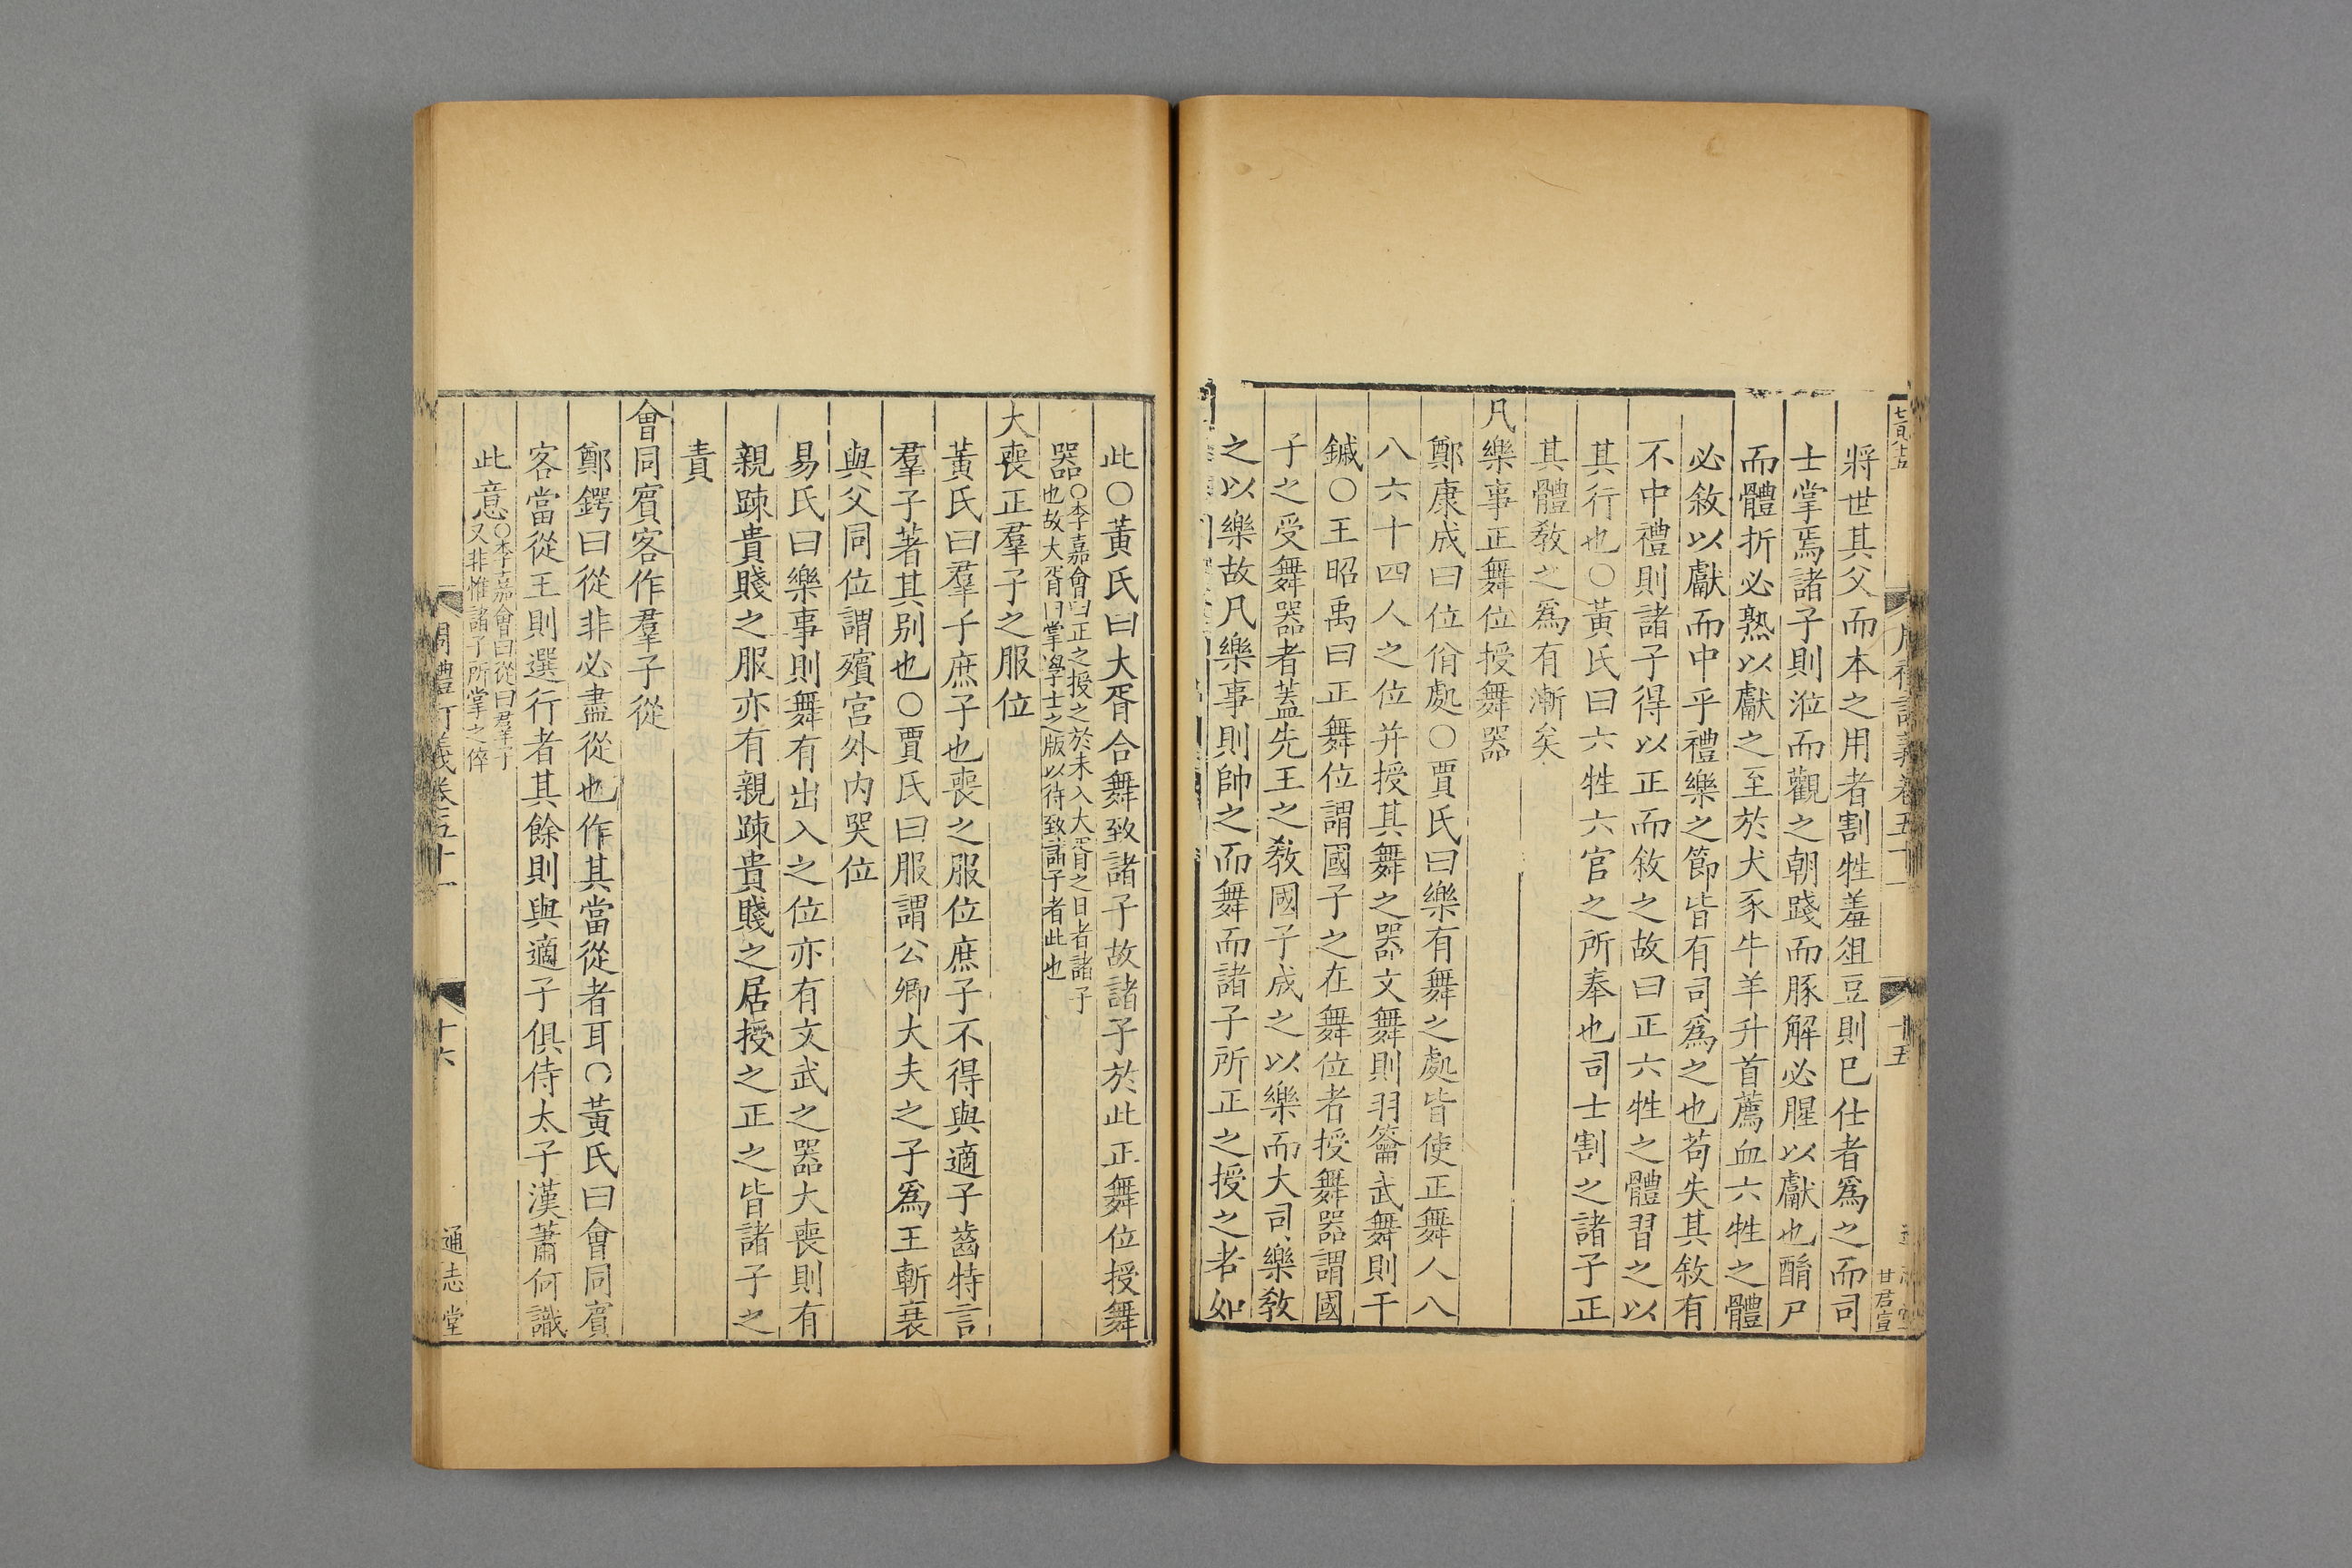 將世其父而本之用者割牲羞俎豆則巳仕者爲之而司
士掌焉諸子則涖而觀之朝踐而豚解必腥以獻也酳尸
而體折必熟以獻之至於犬豕牛羊升首薦血六牲之體
必敘以獻而中乎禮樂之節皆有司爲之也苟失其敘有
不中禮則諸子得以正而敘之故曰正六牲之體習之以
其行也○黃氏曰六牲六官之所奉也司士割之諸子正
其體敎之爲有漸矣
凡樂事正舞位授舞器
鄭康成曰位佾處○賈氏曰樂有舞之處皆使正舞人八
八六十四人之位并授其舞之器文舞則羽籥武舞則干
鏚○王昭禹曰正舞位謂國子之在舞位者授舞器謂國
子之受舞器者蓋先王之敎國子成之以樂而大司樂敎
之以樂故凡樂事則帥之而舞而諸子所正之授之者如
十五
甘君宣
此○黃氏曰大胥合舞致諸子故諸子於此正舞位授舞
器○李嘉會曰正之授之於未入大胥之日者諸子
也故大胥曰掌學士之版以待致諸子者此也
大喪正羣子之服位
黃氏曰羣子庶子也喪之服位庶子不得與適子齒特言
羣子著其别也○賈氏曰服謂公卿大夫之子爲王斬衰
與父同位謂殯宮外内哭位
易氏曰樂事則舞有出入之位亦有文武之器大喪則有
親踈貴賤之服亦有親踈貴賤之居授之正之皆諸子之
責
會同賓客作羣子從
鄭鍔曰從非必盡從也作其當從者耳○黃氏曰會同賓
客當從王則選行者其餘則與適子俱侍太子漢蕭何識
此意○李嘉會曰從曰羣子
又非惟諸子所掌之倅
周禮訂義卷五十一
十六
通志堂